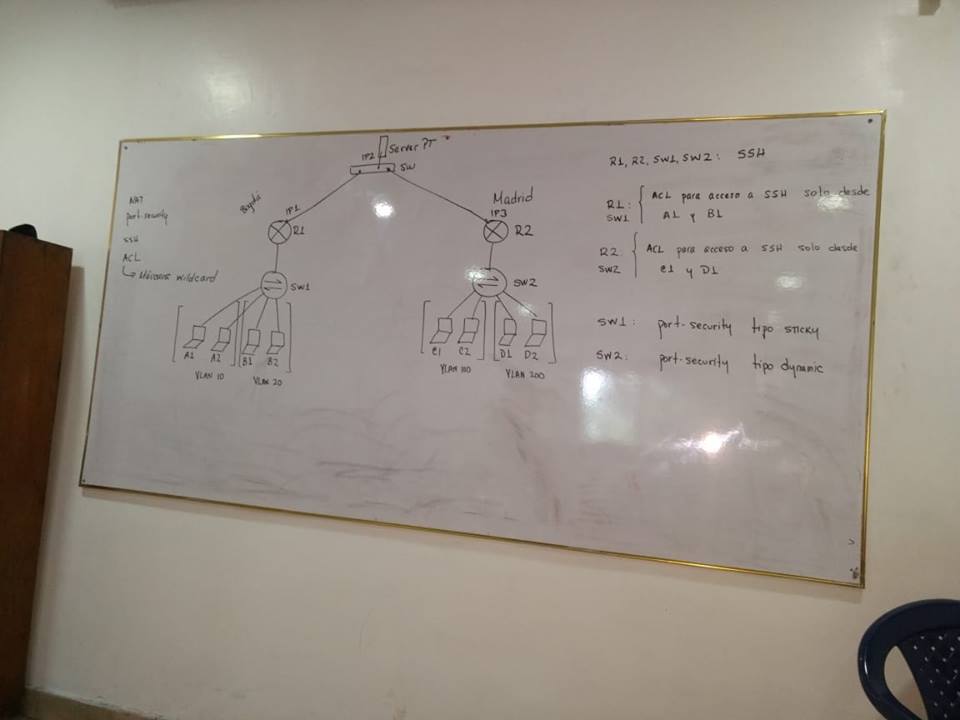 NAT
port-security
SSH
ACL
Máscaras wildcard
Server PT
IP2
SW
Bogotá
IP1
R1
SW1
A1 A2 B1 B2
VLAN 10 VLAN 20
Madrid
IP3
R2
SW2
C1 C2 D1 D2
VLAN 100 VLAN 200
R1, R2, SW1, SW2: SSH
R1: ACL para acceso a SSH solo desde
SW1 A1 y B1
R2: ACL para acceso a SSH solo desde
SW2 C1 y D1
SW1: port-security tipo sticky
SW2: port-security tipo dynamic